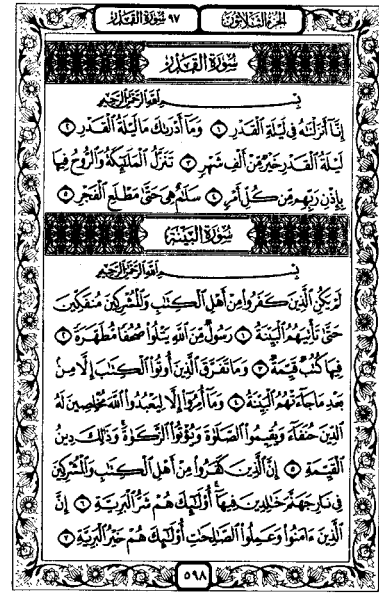 الجزء الثلاثون
٩٧ سورة القدر
سورة القدر
بِسْمِ اللَّهِ الرَّحْمَٰنِ الرَّحِيمِ
إِنَّا أَنزَلْنَٰهُ فِى لَيْلَةِ الْقَدْرِ ١ وَمَا أَدْرَىٰكَ مَا لَيْلَةُ الْقَدْرِ ٢
لَيْلَةُ الْقَدْرِ خَيْرٌ مِّنْ أَلْفِ شَهْرٍ ٣ تَنَزَّلُ الْمَلَٰٓئِكَةُ وَالرُّوحُ فِيهَا
بِإِذْنِ رَبِّهِم مِّن كُلِّ أَمْرٍ ٤ سَلَٰمٌ هِىَ حَتَّىٰ مَطْلَعِ الْفَجْرِ ٥
سورة البينة
بِسْمِ اللَّهِ الرَّحْمَٰنِ الرَّحِيمِ
لَمْ يَكُنِ الَّذِينَ كَفَرُوا مِنْ أَهْلِ الْكِتَٰبِ وَالْمُشْرِكِينَ مُنفَكِّينَ
حَتَّىٰ تَأْتِيَهُمُ الْبَيِّنَةُ ١ رَسُولٌ مِّنَ اللَّهِ يَتْلُوا صُحُفًا مُّطَهَّرَةً ٢
فِيهَا كُتُبٌ قَيِّمَةٌ ٣ وَمَا تَفَرَّقَ الَّذِينَ أُوتُوا الْكِتَٰبَ إِلَّا مِنۢ
بَعْدِ مَا جَآءَتْهُمُ الْبَيِّنَةُ ٤ وَمَآ أُمِرُوٓا إِلَّا لِيَعْبُدُوا اللَّهَ مُخْلِصِينَ لَهُ
الدِّينَ حُنَفَآءَ وَيُقِيمُوا الصَّلَوٰةَ وَيُؤْتُوا الزَّكَوٰةَ وَذَٰلِكَ دِينُ
الْقَيِّمَةِ ٥ إِنَّ الَّذِينَ كَفَرُوا مِنْ أَهْلِ الْكِتَٰبِ وَالْمُشْرِكِينَ
فِى نَارِ جَهَنَّمَ خَٰلِدِينَ فِيهَآ أُولَٰٓئِكَ هُمْ شَرُّ الْبَرِيَّةِ ٦ إِنَّ
الَّذِينَ ءَامَنُوا وَعَمِلُوا الصَّٰلِحَٰتِ أُولَٰٓئِكَ هُمْ خَيْرُ الْبَرِيَّةِ ٧
٥٩٨